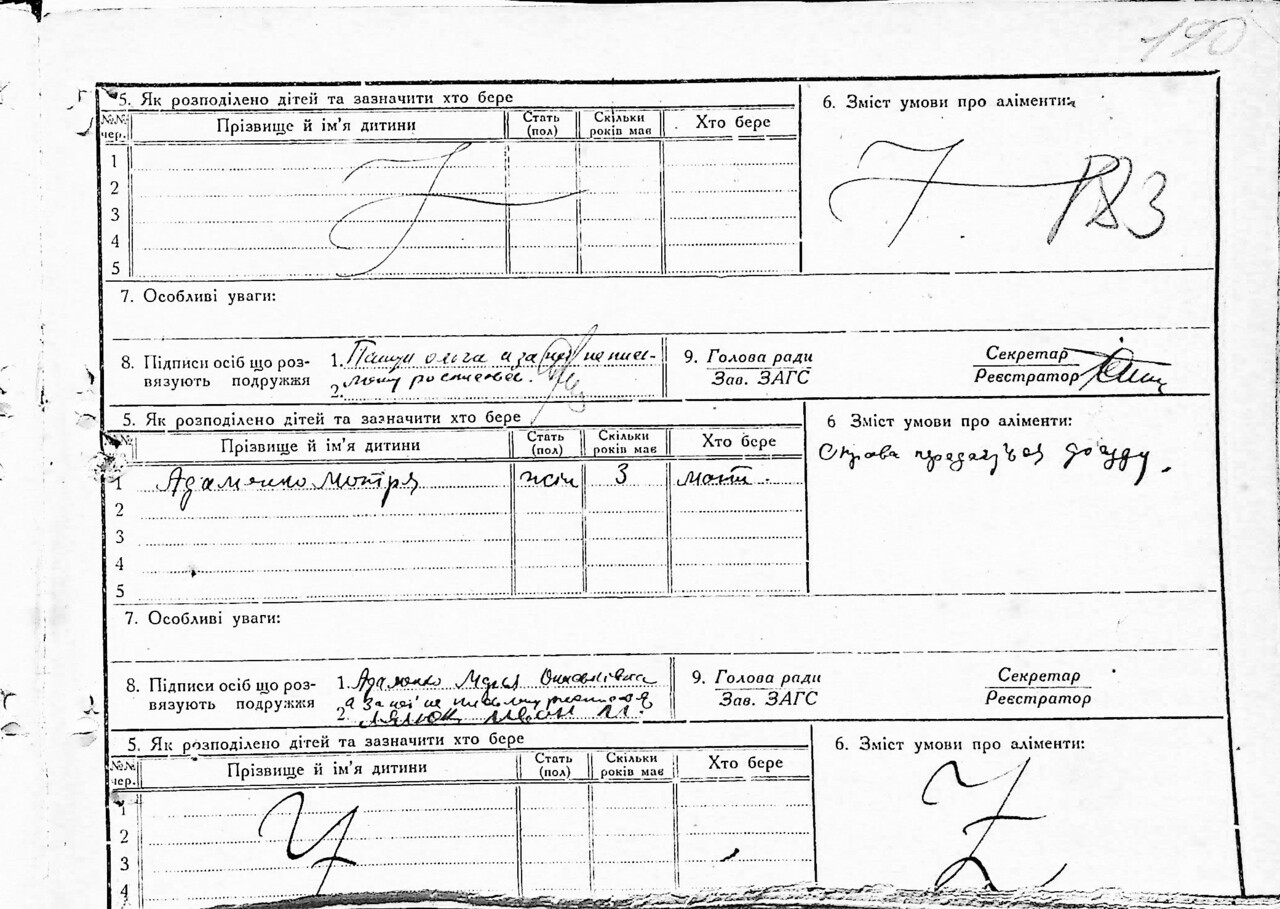 190
5. Як розподілено дітей та зазначити хто бере
№№ чер.
Прізвище й ім'я дитини
Стать (пол)
Скільки років має
Хто бере
1
2
3
4
5
6. Зміст умови про аліменти:
7. Особливі уваги:
8. Підписи осіб що роз-
вязують подружжя
1. Ольга а за неї непись-
2. менну
9. Голова ради
Зав. ЗАГС
Секретар
Реєстратор
5. Як розподілено дітей та зазначити хто бере
№№
Прізвище й ім'я дитини
Стать (пол)
Скільки років має
Хто бере
1 Адаменко Мотря жін 3 мати.
2
3
4
5
6 Зміст умови про аліменти:
Справа передається до суду.
7. Особливі уваги:
8. Підписи осіб що роз-
вязують подружжя
1. Адаменко Марія
а за неї не письмену
2. Іван М.
9. Голова ради
Зав. ЗАГС
Секретар
Реєстратор
5. Як розподілено дітей та зазначити хто бере
№№ чер.
Прізвище й ім'я дитини
Стать (пол)
Скільки років має
Хто бере
1
2
3
4
6. Зміст умови про аліменти: